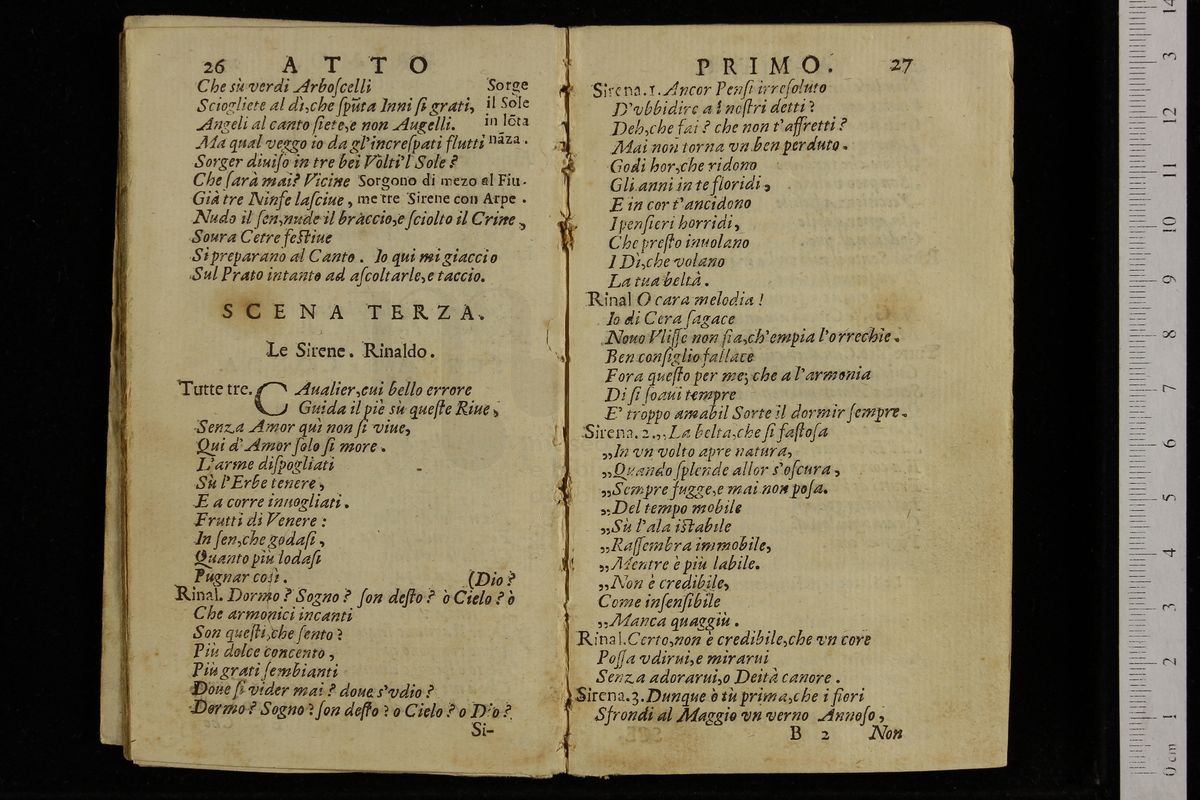 26 ATTO
Che sù verdi Arboſcelli Sorge
Sciogliete al dì,che ſpũta Inni ſi grati, il Sole
Angeli al canto ſiete,e non Augelli. in lõta
Ma qual veggo io da gl'increſpati flutti nãza.
Sorger diuiſo in tre bei Volti'l Sole?
Che ſarà mai? Vicine Sorgono di mezo al Fiu-
Già tre Ninfe laſciue, me tre Sirene con Arpe.
Nudo il ſen,nude il braccio,e ſciolto il Crine,
Soura Cetre feſtiue
Si preparano al Canto. Io qui mi giaccio
Sul Prato intanto ad aſcoltarle,e taccio.
SCENA TERZA.
Le Sirene. Rinaldo.
Tutte tre. CAualier,cui bello errore
Guida il piè sù queſte Riue,
Senza Amor quì non ſi viue,
Qui d'Amor ſolo ſi more.
L'arme diſpogliati
Sù l'Erbe tenere,
E a corre inuogliati.
Frutti di Venere:
In ſen,che godaſi,
Quanto più lodaſi
Pugnar così. (Dio?
Rinal. Dormo? Sogno? ſon deſto? ò Cielo? ò
Che armonici incanti
Son queſti,che ſento?
Più dolce concento,
Più grati ſembianti
Doue ſi vider mai? doue s'vdio?
Dormo? Sogno? ſon deſto? o Cielo? o Dio?
Si-
PRIMO. 27
Sirena.1. Ancor Penſi irreſoluto
D'vbbidire a i noſtri detti?
Deh,che fai? che non t'affretti?
Mai non torna vn ben perduto.
Godi hor,che ridono
Gli anni in te floridi,
E in cor t'ancidono
I penſieri horridi,
Che preſto inuolano
I Dì,che volano
La tua beltà.
Rinal O cara melodia!
Io di Cera ſagace
Nouo Vliſſe non fia,ch'empia l'orrechie.
Ben conſiglio fallace
Fora queſto per me; che a l'armonia
Di ſi ſoaui tempre
E' troppo amabil Sorte il dormir ſempre.
Sirena.2.,,La beltà,che ſi faſtoſa
,,In vn volto apre natura,
,,Quando ſplende allor s'oſcura,
,,Sempre fugge,e mai non poſa.
,,Del tempo mobile
,,Sù l'ala iſtabile
,,Raſſembra immobile,
,,Mentre è più labile.
,,Non è credibile,
Come inſenſibile
,,Manca quaggiù.
Rinal.Certo,non è credibile,che vn core
Poſſa vdirui,e mirarui
Senza adorarui,o Deità canore.
Sirena.3.Dunque ò tù prima,che i fiori
Sfrondi al Maggio vn verno Annoſo,
B 2 Non